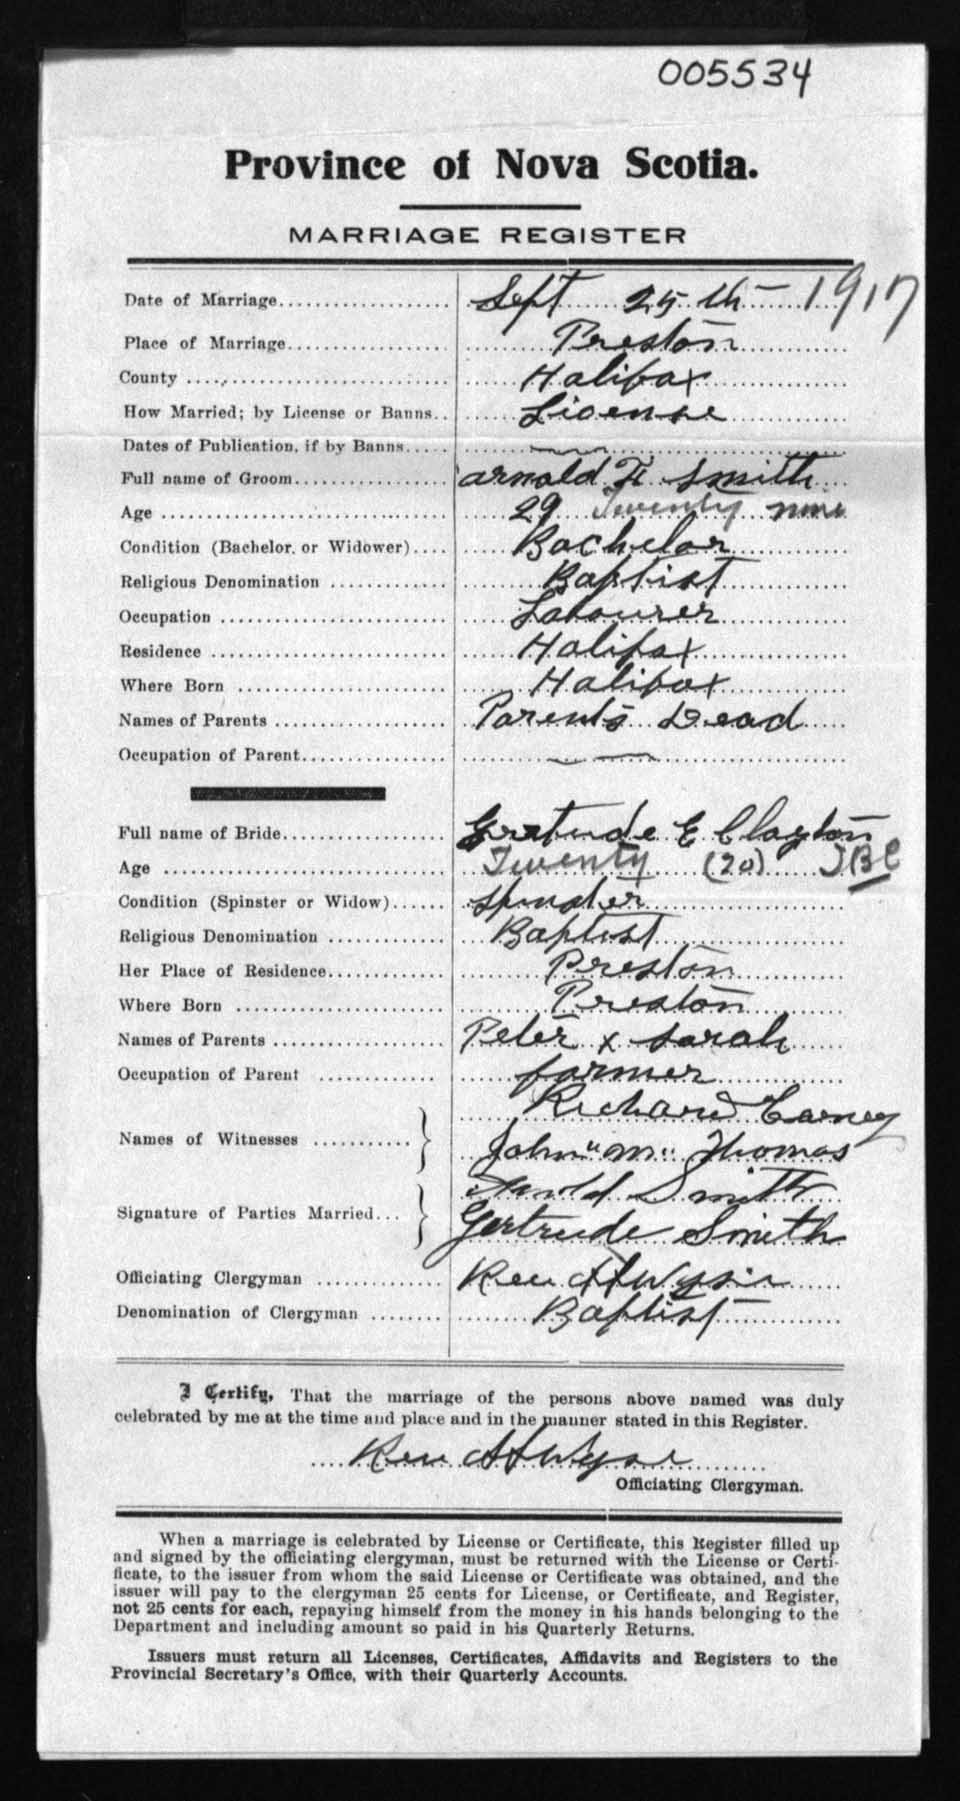 005534
Province of Nova Scotia.
MARRIAGE REGISTER
Date of Marriage.................. Sept 25th 1917
Place of Marriage................. Preston
County ........................... Halifax
How Married; by License or Banns.. License
Dates of Publication, if by Banns.....
Full name of Groom................ Arnold F. Smith
Age .............................. 29 Twenty nine
Condition (Bachelor or Widower).... Bachelor
Religious Denomination ............ Baptist
Occupation ....................... Labourer
Residence ........................ Halifax
Where Born ....................... Halifax
Names of Parents ................. Parents Dead
Occupation of Parent..............
Full name of Bride................ Gertrude E Clayton
Age .............................. Twenty (20) JBC
Condition (Spinster or Widow)...... Spinster
Religious Denomination ............ Baptist
Her Place of Residence............ Preston
Where Born ....................... Preston
Names of Parents ................. Peter x Sarah
Occupation of Parent ............. farmer
Richard Carney
Names of Witnesses ...........
John "M" Thomas
Arnold Smith
Signature of Parties Married...
Gertrude Smith
Officiating Clergyman ............. Rev
Denomination of Clergyman ........ Baptist
I Certify, That the marriage of the persons above named was duly
celebrated by me at the time and place and in the manner stated in this Register.
Rev
Officiating Clergyman.
When a marriage is celebrated by License or Certificate, this Register filled up
and signed by the officiating clergyman, must be returned with the License or Certi-
ficate, to the issuer from whom the said License or Certificate was obtained, and the
issuer will pay to the clergyman 25 cents for License, or Certificate, and Register,
not 25 cents for each, repaying himself from the money in his hands belonging to the
Department and including amount so paid in his Quarterly Returns.
Issuers must return all Licenses, Certificates, Affidavits and Registers to the
Provincial Secretary's Office, with their Quarterly Accounts.